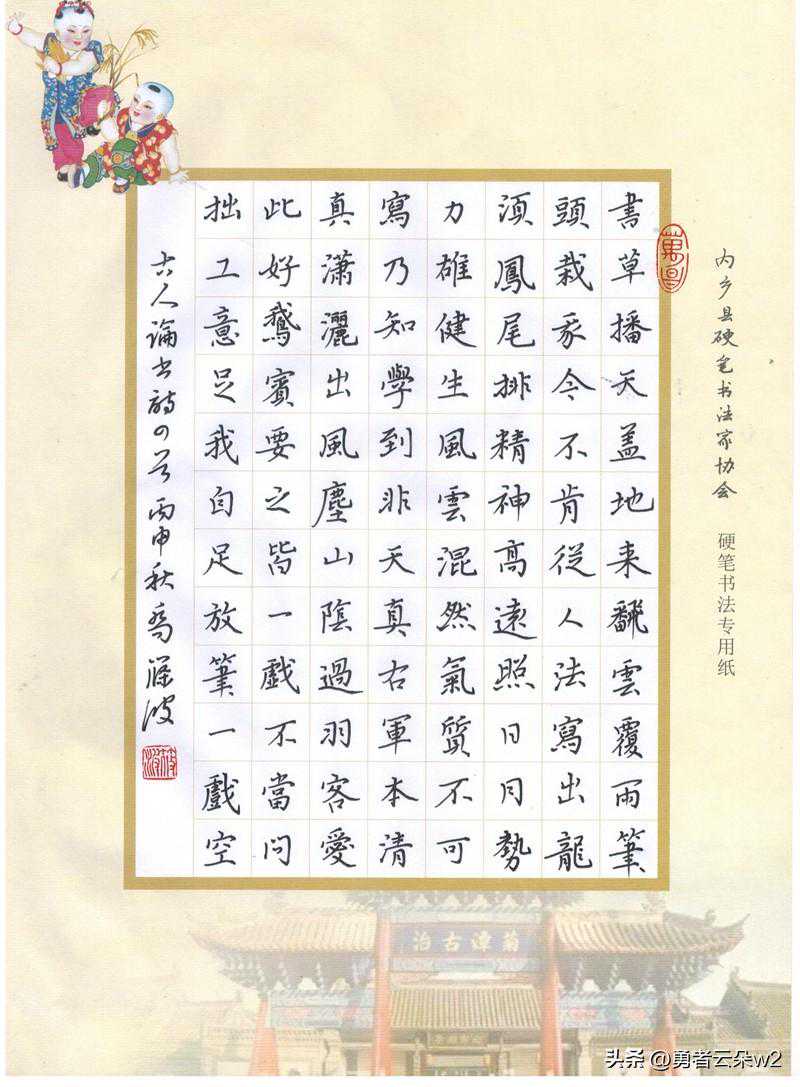 書草播天盖地来飜雲覆雨筆
頭栽豕今不肯從人法寫出龍
須鳳尾排精神高遠照日月勢
力雄健生風雲混然氣質不可
寫乃知學到非天真右軍本清
真瀟灑出風塵山陰過羽客愛
此好鵝賓要之皆一戲不當問
拙工意足我自足放筆一戲空
古人論书詩四首丙申秋喬
内乡县硬笔书法家协会
硬笔书法专用纸
菊潭古治
头条@勇者云朵w2